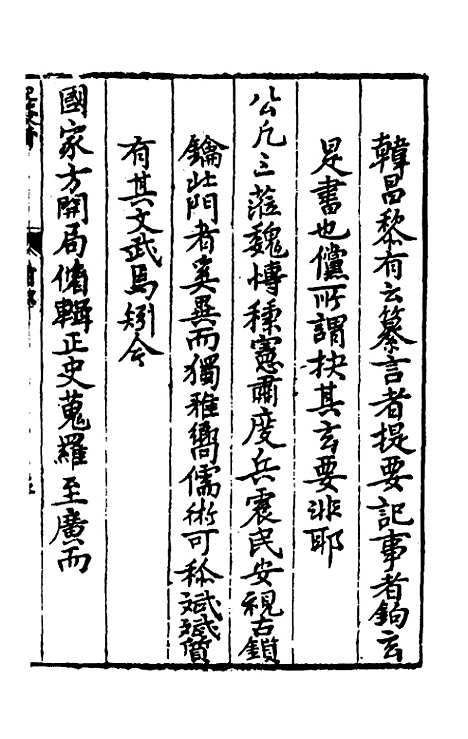 韓昌黎有云纂言者提要記事者鉤玄
是書也儻所謂抉其玄要非耶
公凡三蒞魏博種憲肅度兵震民安視古鎖
鑰此門者奚異而獨雅嚮儒術可稱斌斌質
有其文武焉矧今
國家方開局脩輯正史蒐羅至廣而